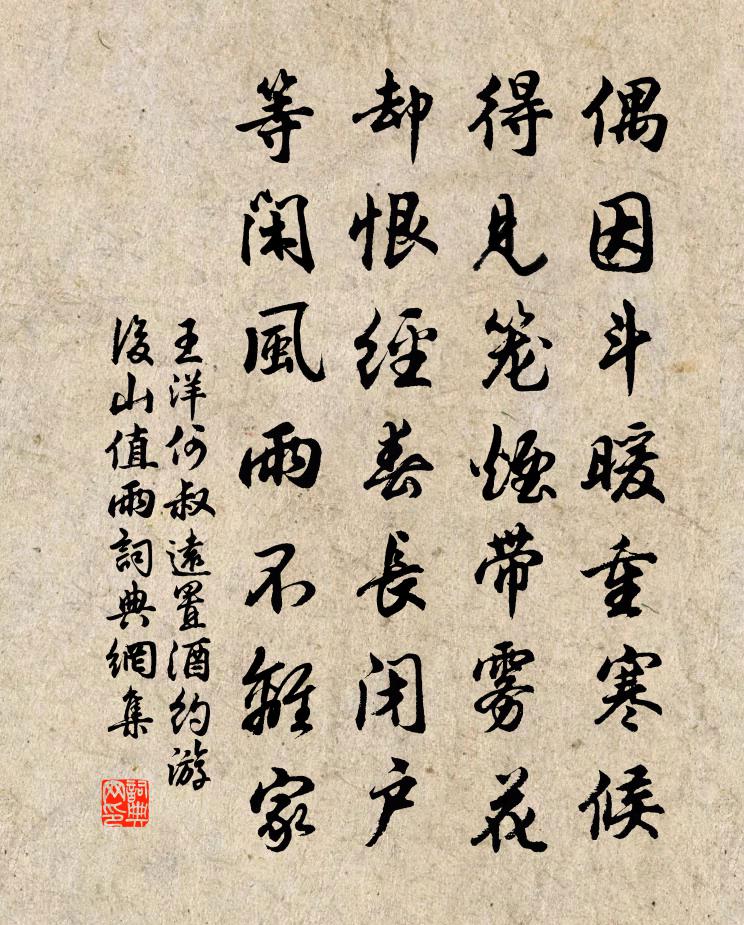 偶因斗暖重寒候
得見笼煙带雾花
却恨經春長闭户
等闲風雨不離家
王洋何叔遠置酒约游
後山值雨詞典網集
詞典网印